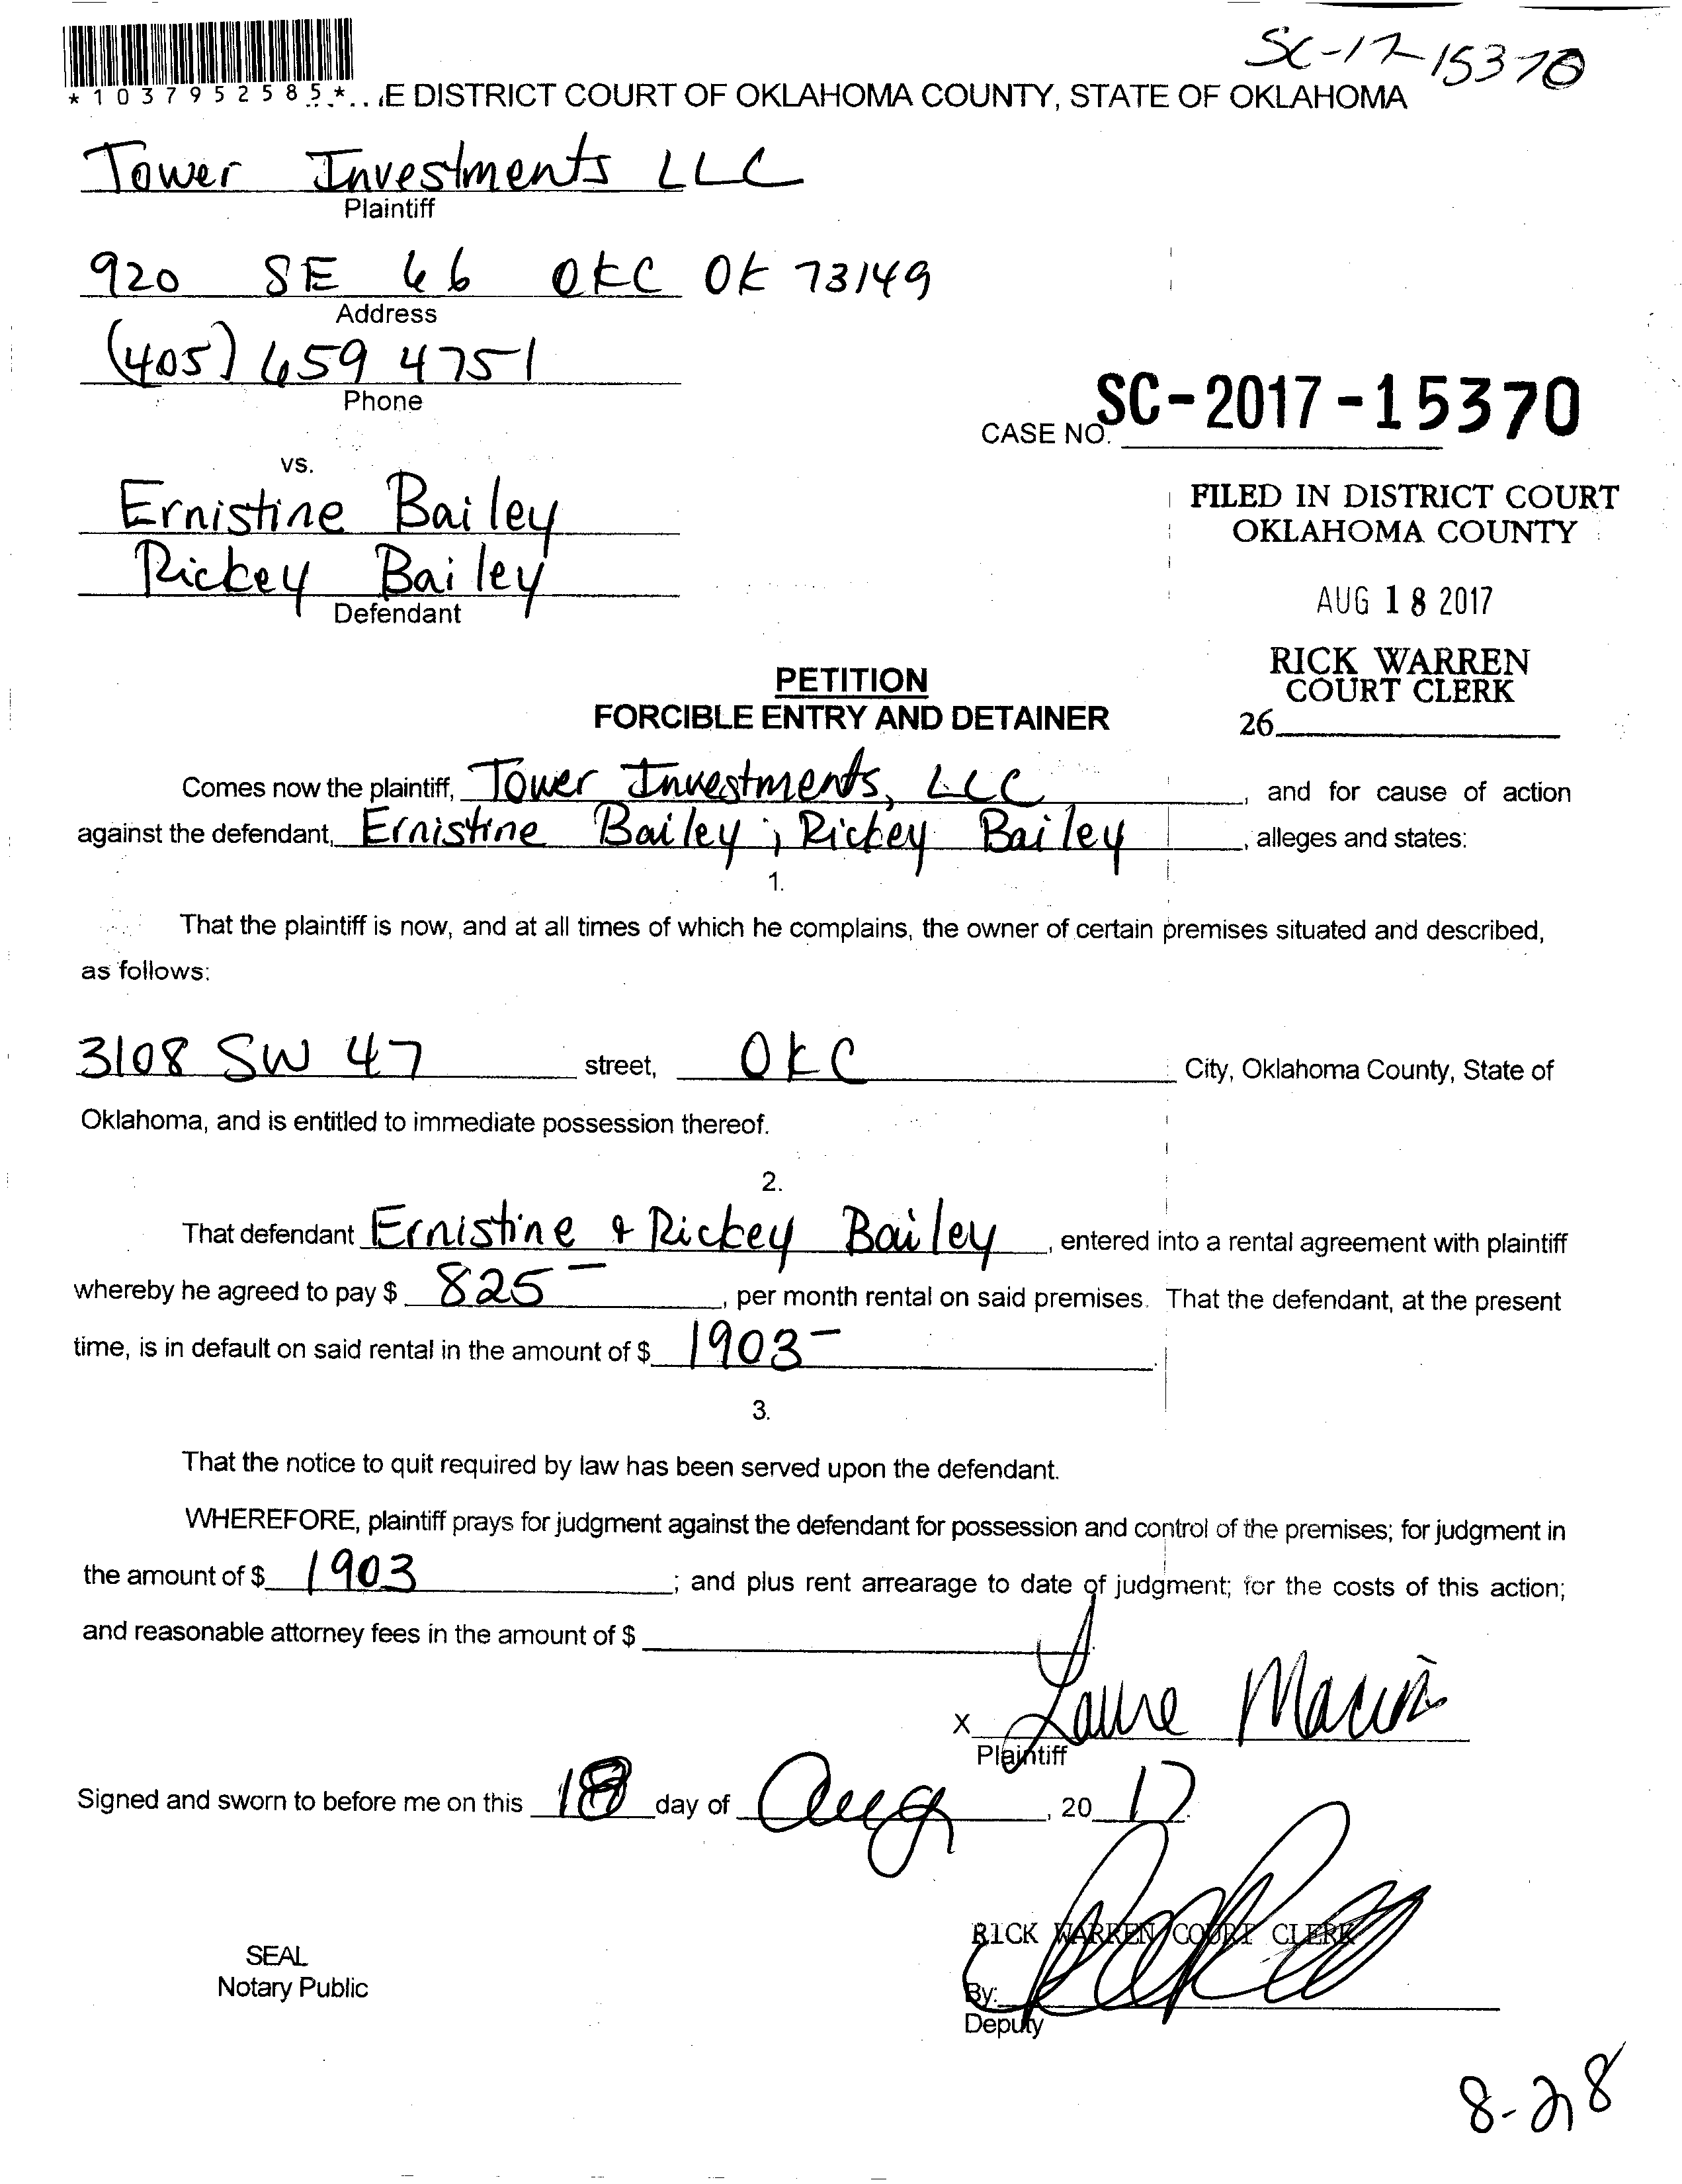 SC-17-15370
*1037952585*
E DISTRICT COURT OF OKLAHOMA COUNTY, STATE OF OKLAHOMA
Tower Investments LLC
Plaintiff
920 SE 66 OKC OK 73149
Address
(405) 659 4751
Phone
CASE NO. SC-2017-15370
vs.
Ernistine Bailey
Rickey Bailey
Defendant
FILED IN DISTRICT COURT
OKLAHOMA COUNTY
AUG 18 2017
RICK WARREN
COURT CLERK
26
PETITION
FORCIBLE ENTRY AND DETAINER
Comes now the plaintiff, Tower Investments, LLC, and for cause of action
against the defendant, Ernistine Bailey; Rickey Bailey, alleges and states:
1.
That the plaintiff is now, and at all times of which he complains, the owner of certain premises situated and described,
as follows:
3108 SW 47 street, OKC City, Oklahoma County, State of
Oklahoma, and is entitled to immediate possession thereof.
2.
That defendant Ernistine & Rickey Bailey, entered into a rental agreement with plaintiff
whereby he agreed to pay $ 825-, per month rental on said premises. That the defendant, at the present
time, is in default on said rental in the amount of $ 1903-.
3.
That the notice to quit required by law has been served upon the defendant.
WHEREFORE, plaintiff prays for judgment against the defendant for possession and control of the premises; for judgment in
the amount of $ 1903; and plus rent arrearage to date of judgment; for the costs of this action;
and reasonable attorney fees in the amount of $
X
Plaintiff
Signed and sworn to before me on this 18 day of Aug, 20 17.
RICK WARREN COURT CLERK
SEAL
Notary Public
By:
Deputy
8-28